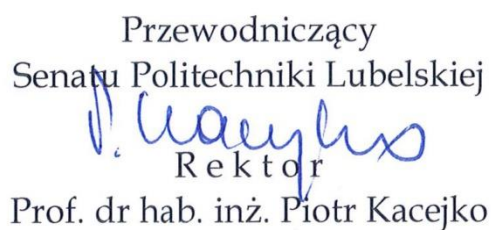 Przewodniczący
Senatu Politechniki Lubelskiej
P. Kacejko
R e k t o r
Prof. dr hab. inż. Piotr Kacejko